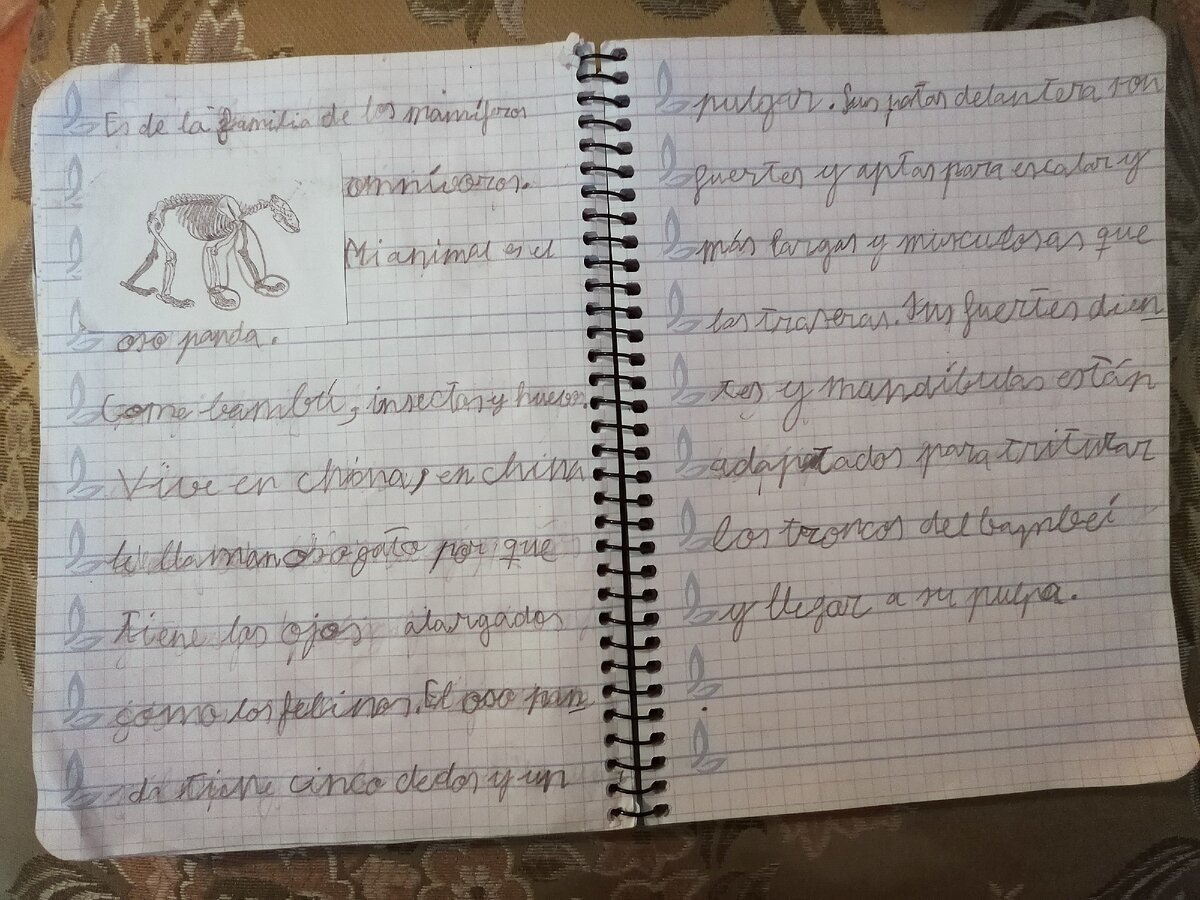 Es de la familia de los mamíferos
omnívoros.
Mi animal es el
oso panda.
Come bambú, insectos y huevos.
Vive en china, en china
le llaman oso gato por qué
tiene los ojos alargados
como los felinos. El oso pan
da tiene cinco dedos y un
pulgar. Sus patas delantera son
fuertes y aptas para escalar y
más largas y musculosas que
las traseras. Sus fuertes dien
tes y mandíbulas están
adaptados para triturar
los troncos del bambú
y llegar a su pulpa.